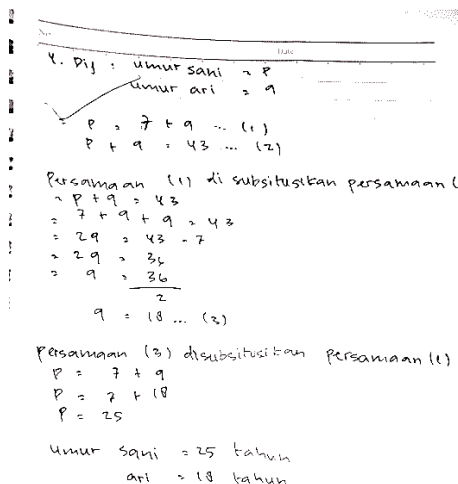 No.
Date
4. Dij : umur sani = p
umur ari = q
= p = 7 + q ... (1)
p + q = 43 ... (2)
Persamaan (1) di subsitusikan persamaan (
= p + q = 43
= 7 + q + q = 43
= 2q = 43 - 7
= 2q = 36
= q = 36
2
q = 18 ... (3)
persamaan (3) disubsitusikan persamaan (1)
p = 7 + q
p = 7 + 18
p = 25
umur sani = 25 tahun
ari = 18 tahun